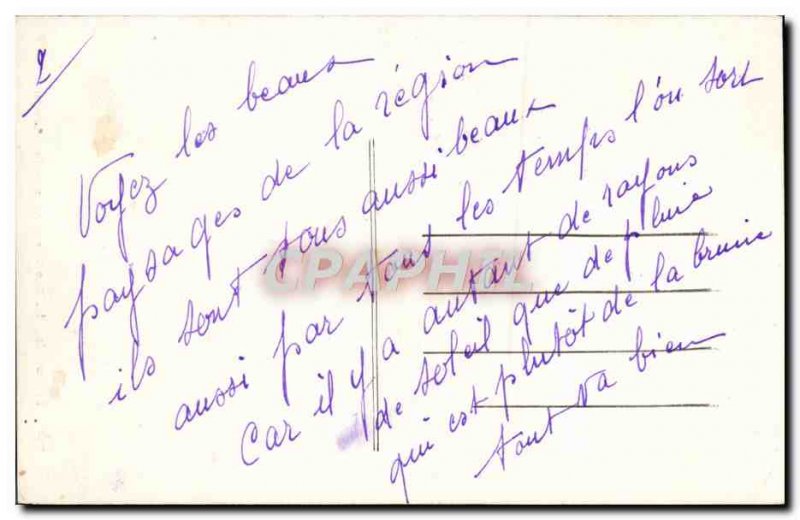 2
Voyez les beaux
paysages de la région
ils sont tous aussi beaux
aussi par tout les temps l'on sort
Car il y a autant de rayons
de soleil que de pluie
qui est plutôt de la bruine
tout va bien
CPAPHIL